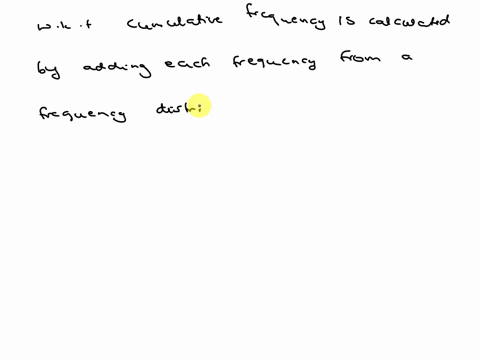 w.k.t cumulative frequency is calculated
by adding each frequency from a
frequency distri